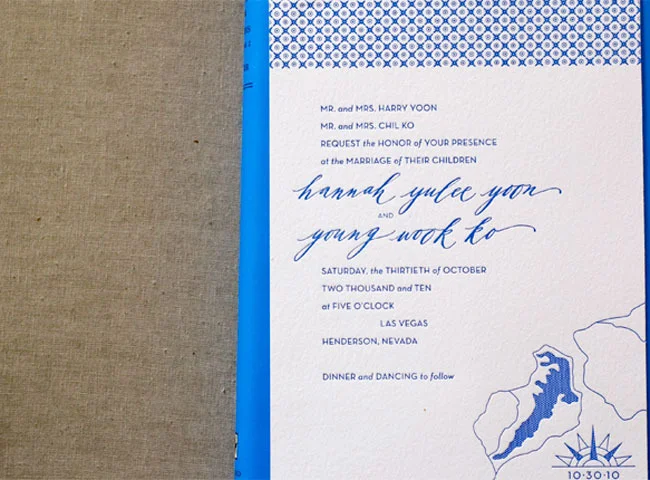 MR. and MRS. HARRY YOON
MR. and MRS. CHIL KO
REQUEST the HONOR of YOUR PRESENCE
at the MARRIAGE of THEIR CHILDREN
hannah yulee yoon
AND
young wook ko
SATURDAY, the THIRTIETH of OCTOBER
TWO THOUSAND and TEN
at FIVE O'CLOCK
LAS VEGAS
HENDERSON, NEVADA
DINNER and DANCING to follow
10·30·10